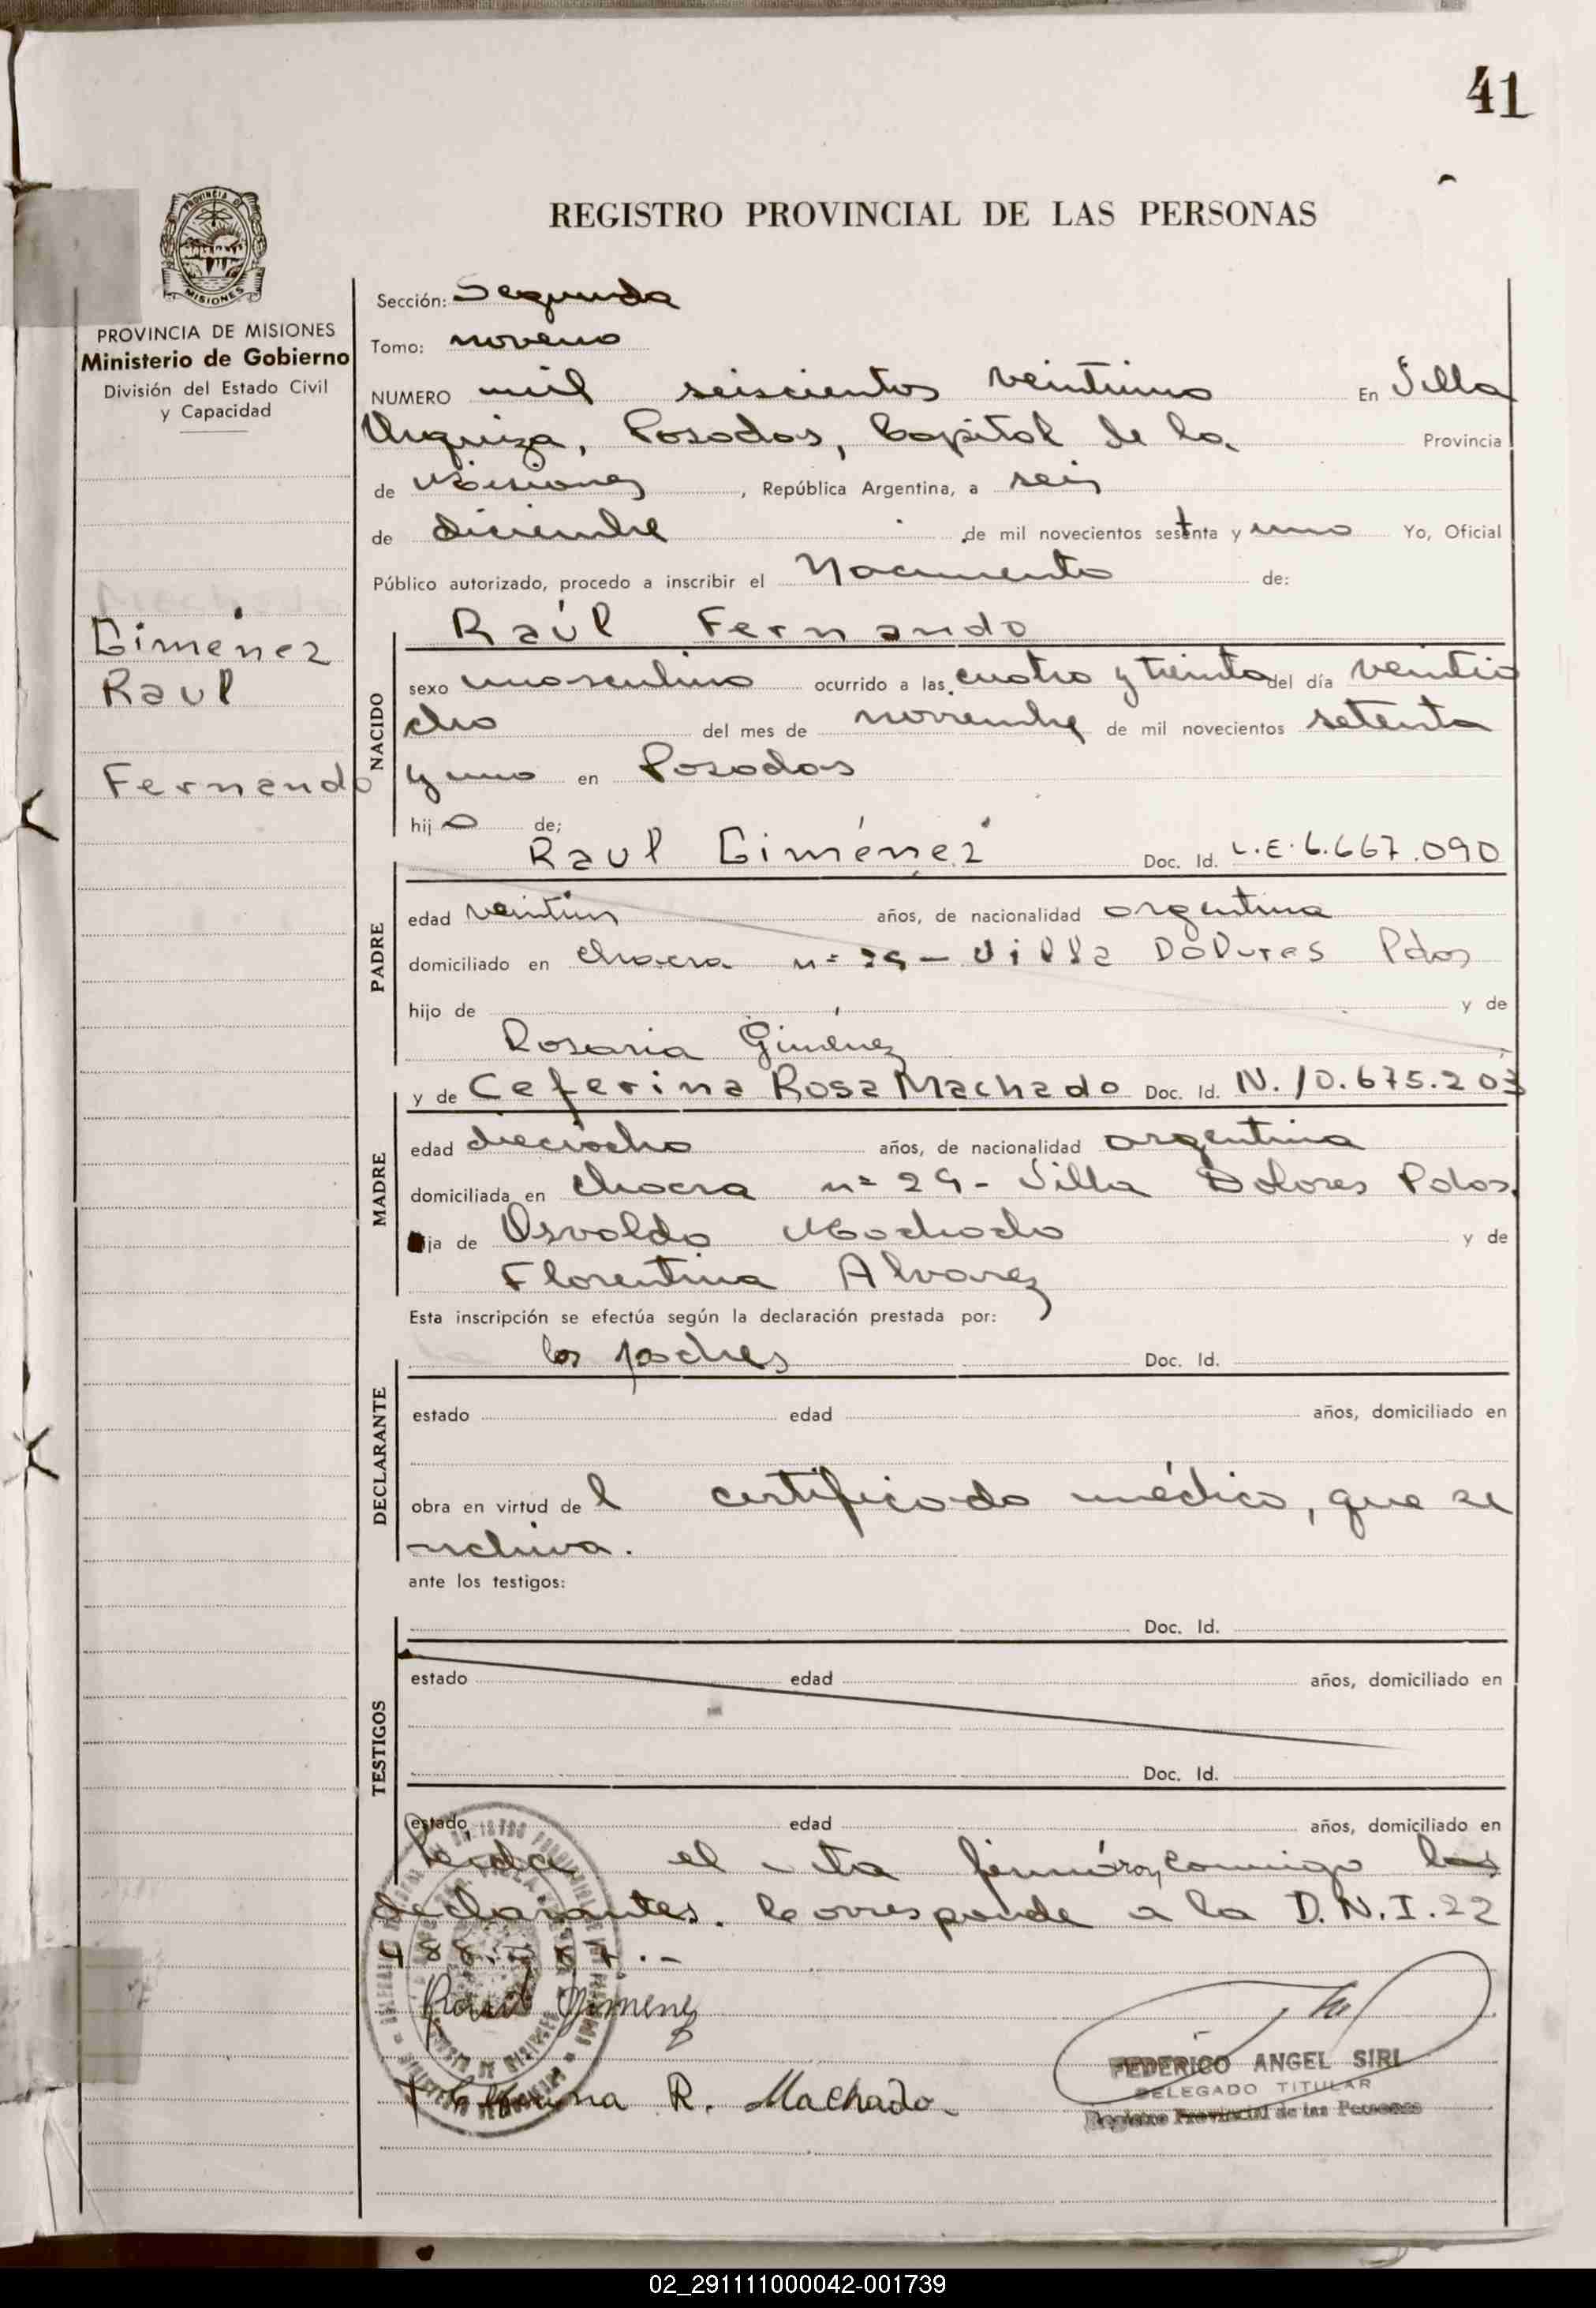 41
REGISTRO PROVINCIAL DE LAS PERSONAS
PROVINCIA DE MISIONES
PROVINCIA DE MISIONES
Ministerio de Gobierno
División del Estado Civil
y Capacidad
Gimenez
Raul
Fernando
Sección: Segunda
Tomo: noveno
NUMERO mil seiscientos veintiuno En Villa
Urquiza, Posadas, Capital de la Provincia
de Misiones, República Argentina, a seis
de diciembre de mil novecientos setenta y uno Yo, Oficial
Público autorizado, procedo a inscribir el Nacimiento de:
Raúl Fernando
NACIDO
sexo masculino ocurrido a las cuatro y treinta del día veintio
cho del mes de noviembre de mil novecientos setenta
y uno en Posadas
hijo de;
Raul Giménez Doc. Id. L.E. 6.667.090
PADRE
edad veintiun años, de nacionalidad argentina
domiciliado en chacra nº 29 - Villa Dolores Pdas
hijo de y de
Rosaria Giménez
y de Ceferina Rosa Machado Doc. Id. N. 10.675.203
MADRE
edad dieciocho años, de nacionalidad argentina
domiciliada en chacra nº 29 - Villa Dolores Pdas.
ija de Osvaldo Machado y de
Florentina Alvarez
Esta inscripción se efectúa según la declaración prestada por:
los padres Doc. Id.
DECLARANTE
estado edad años, domiciliado en
obra en virtud del certificado médico, que se
archiva.
ante los testigos:
Doc. Id.
TESTIGOS
estado edad años, domiciliado en
Doc. Id.
estado edad años, domiciliado en
Leida el cta firmáron conmigo los
declarantes. Corresponde a la D.N.I. 22
Raul Gimenez
Ceferina R. Machado.
FEDERICO ANGEL SIRI
DELEGADO TITULAR
Registro Provincial de las Personas
02_291111000042-001739